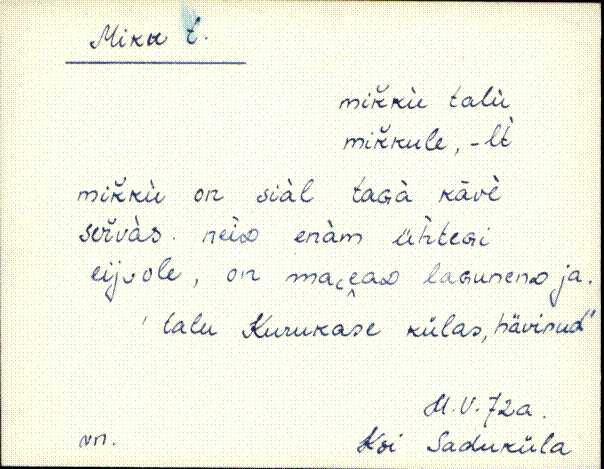 Miku t.
mik̆kù talù
mik̆kule, -lt̀
mik̆kù on siàl tagà kāvè
servàs. neiD enàm ühtegi
eijole, on magead lagunenD ja.
' talu Kurukase külas, hävinud"
M.V. 72a.
vn. Ksi Saduküla